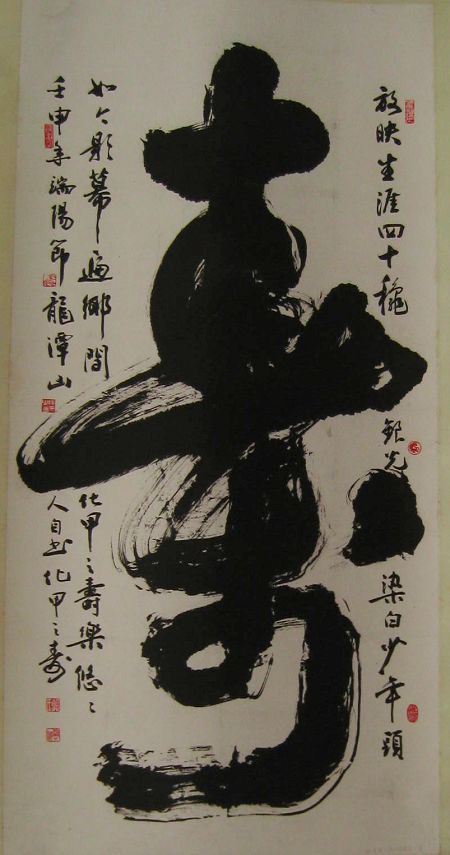 放映生涯四十穐 銀光 染白少年頭
壽
如今影幕遍鄉間 化甲之壽樂悠々
壬申年端陽節龍潭山人自书化甲之寿